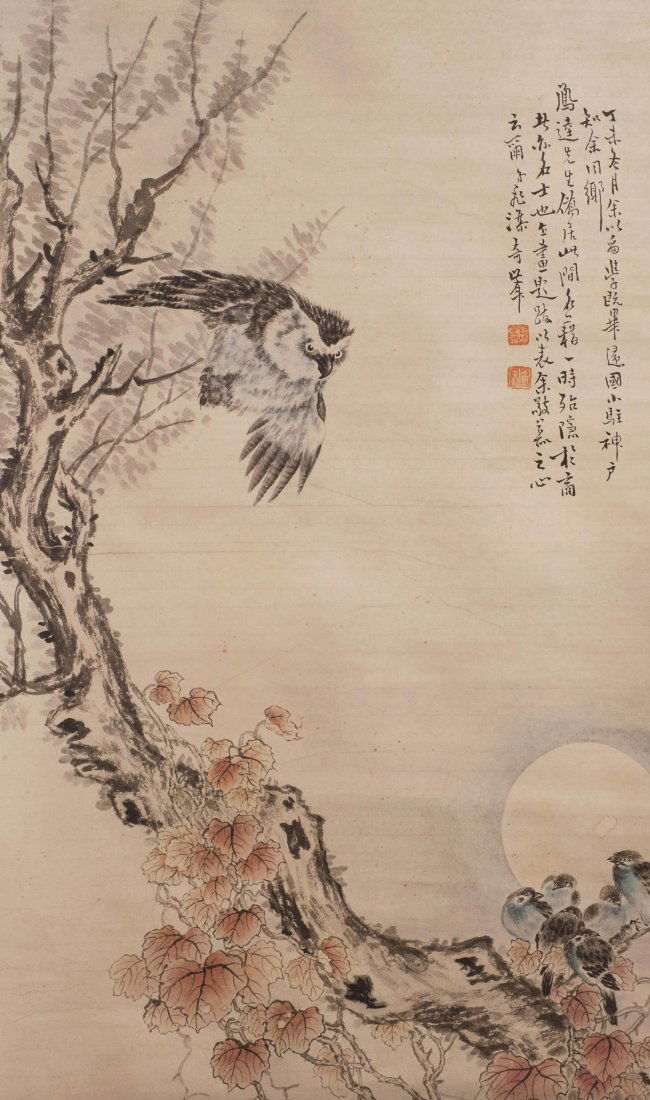 丁未冬月余以留學既畢還國小駐神戶
知余同鄉
鳳逵先生僑居此間名籍一時殆隱於商
者亦名士也占畫題跋以表余敬慕之心
云爾 奇峯